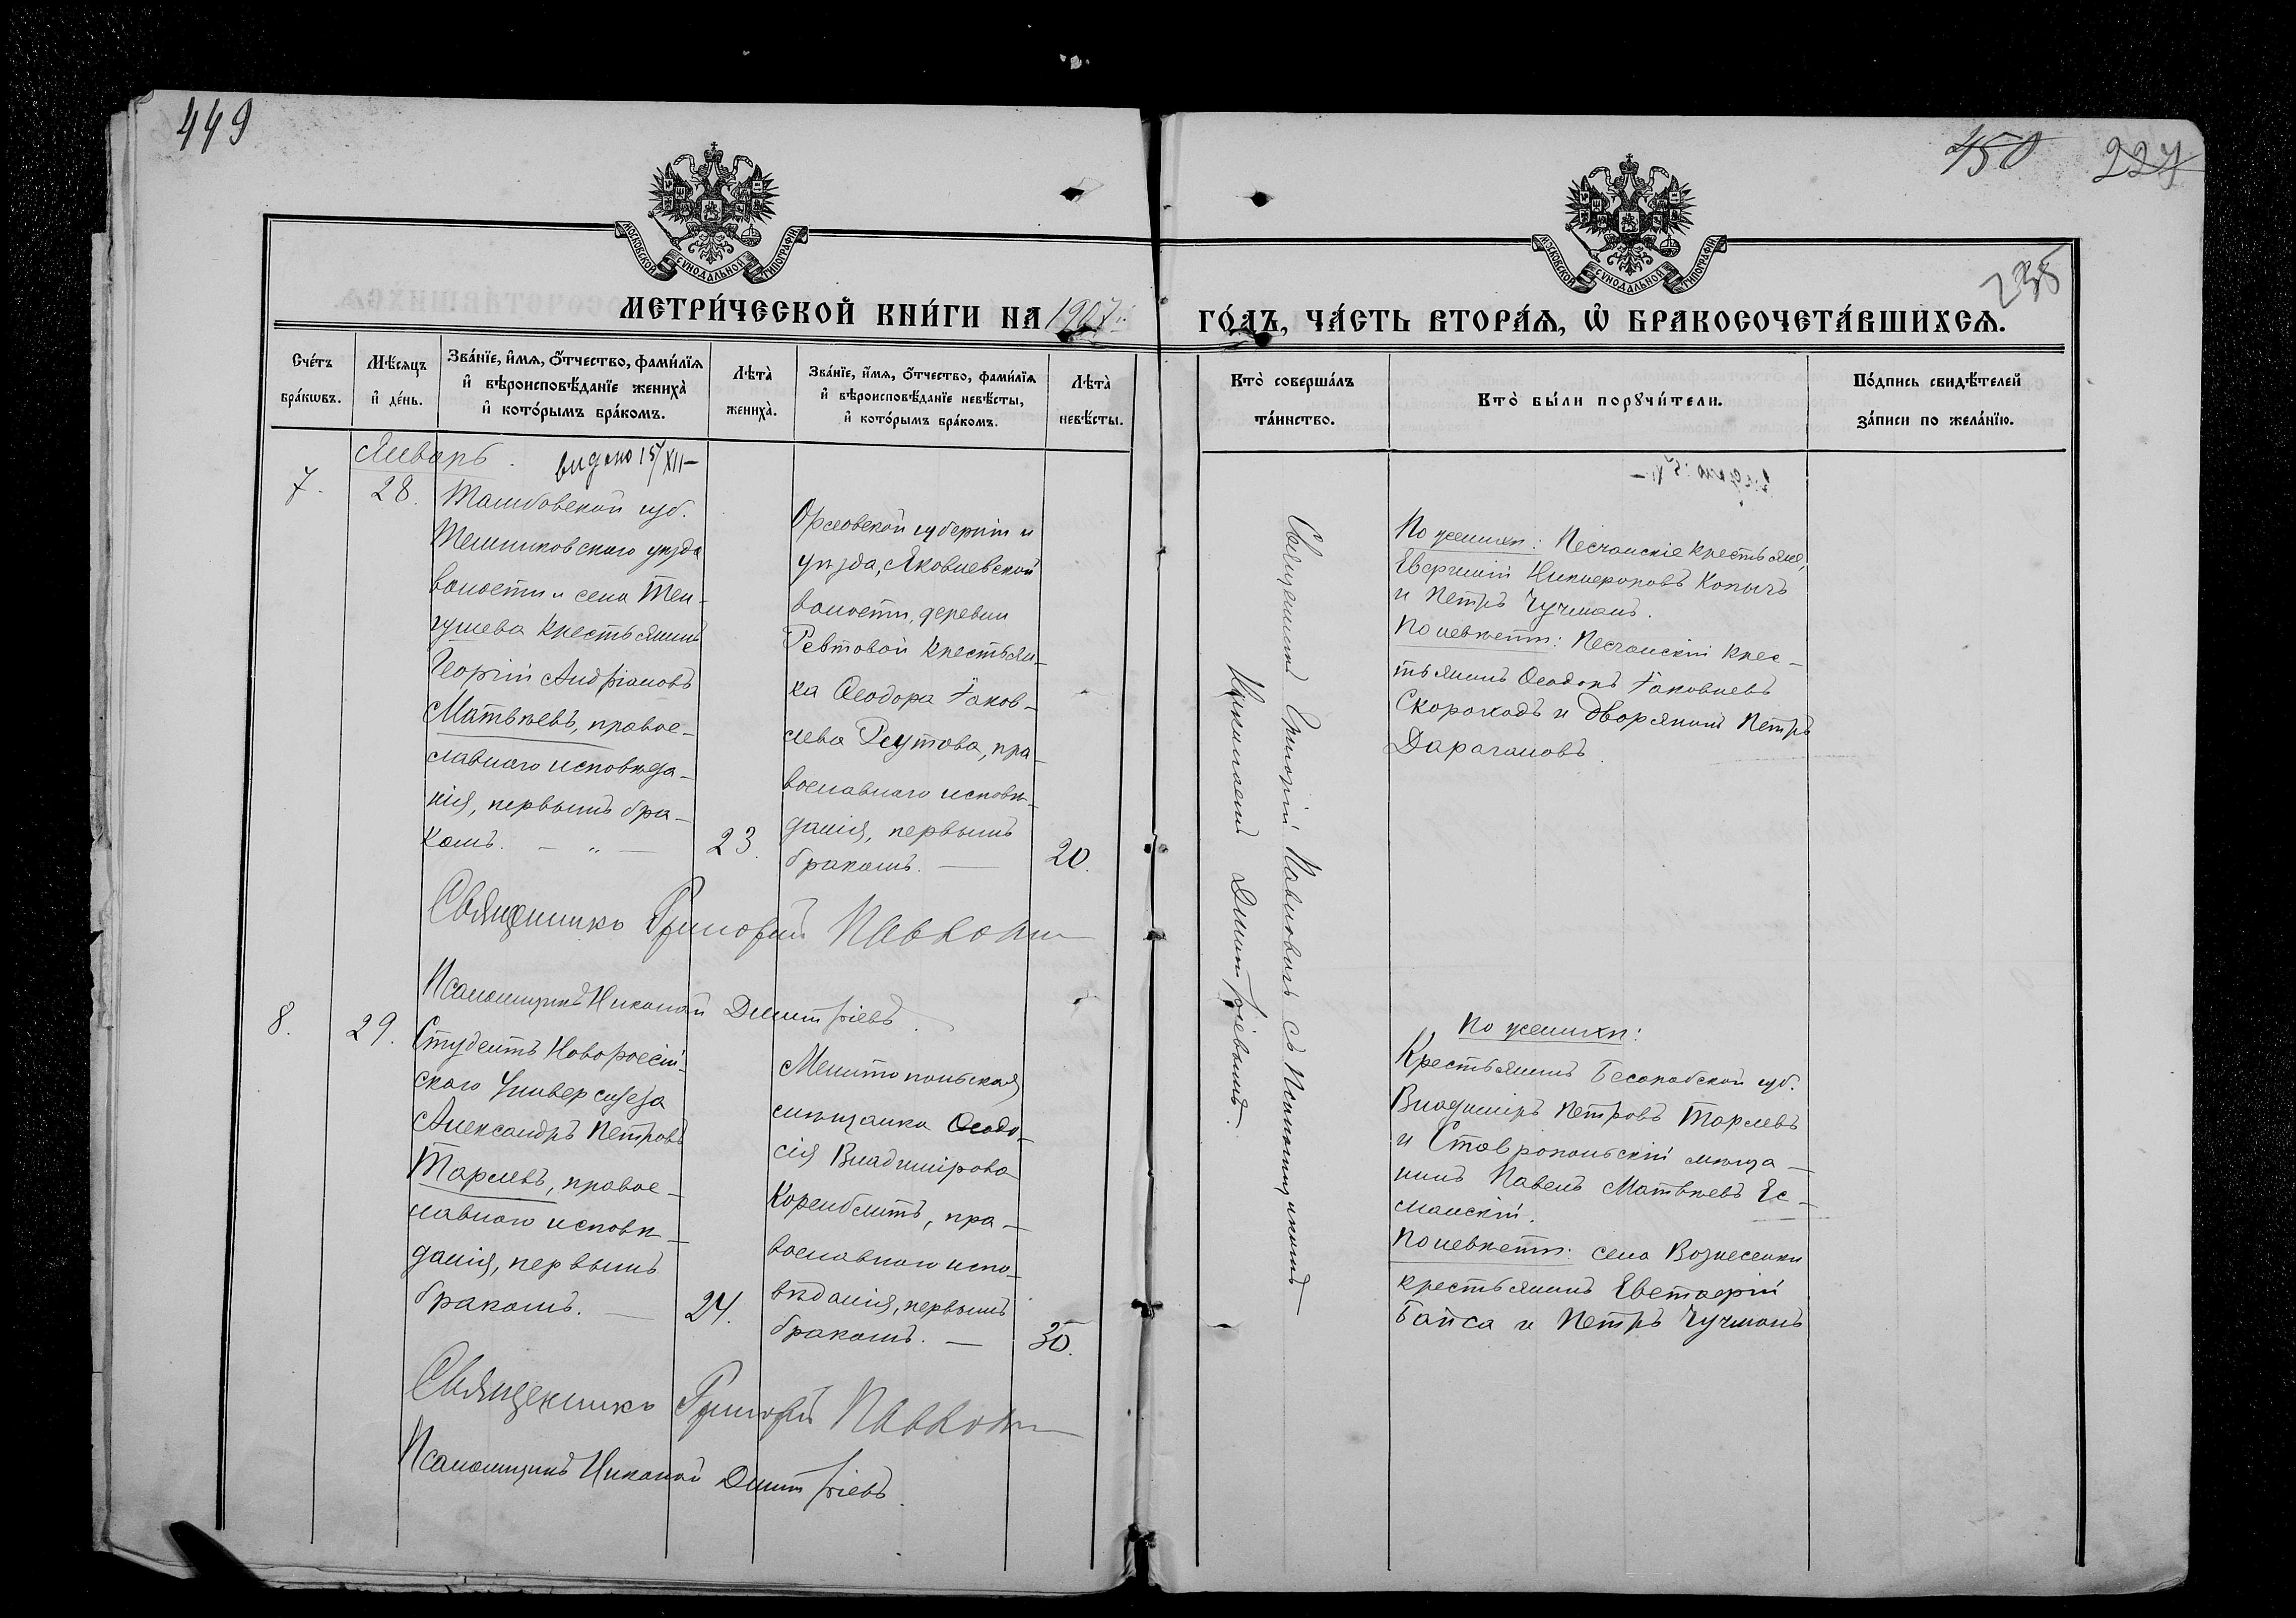 449
450
227
235
МОСКОВСКОЙ СѴНОДАЛЬНОЙ ТИПОГРАФІИ
МОСКОВСКОЙ СѴНОДАЛЬНОЙ ТИПОГРАФІИ
МЕТРИ́ЧЕСКОЙ КНИ́ГИ НА 1907
ГО́ДЪ, ЧА́СТЬ ВТОРА́Ѧ, Ѽ БРАКОСОЧЕТА́ВШИХСѦ.
Сче́тъ
бра́кѡвъ.
Мѣ́сѧцъ
и҆ де́нь.
Зва́нїе, и҆́мѧ, ѻ҆́тчество, фами́лїѧ
и҆ вѣроисповѣ́данїе жениха̀
и҆ кото́рымъ бра́комъ.
Лѣта̀
жениха̀.
Зва́нїе, и҆́мѧ, ѻ҆́тчество, фами́лїѧ
и҆ вѣроисповѣ́данїе невѣ́сты,
и҆ кото́рымъ бра́комъ.
Лѣта̀
невѣ́сты.
Кто̀ соверша́лъ
та́инство.
Кто̀ бы́ли порꙋчи́тели.
По́дпись свидѣ́телей
за́писи по жела́нїю.
Январь.
видано 15/XII—
7.
28.
Тамбовской губ.
Темниковскаго уѣзда
волости и села Тен-
гушева крестьянинъ
Георгій Андріановъ
Матвѣевъ, правос-
лавнаго исповѣда-
нія, первымъ бра-
комъ. — „ —
23.
Орловской губерніи и
уѣзда, Яковлевской
волости, деревни
Ревтовой крестьян-
ка Ѳеодора Іаков-
лева Реутова, пра-
вославнаго исповѣ-
данія, первымъ
бракомъ. —
20.
Священникъ Григорій Павловичъ съ Псаломщикомъ
Николаемъ Димитріевымъ.
По женихѣ: Песчанскіе крестьяне,
Никифоровъ Копычъ
и Петръ Чучманъ.
По невѣстѣ: Песчанскій крес-
тьянинъ Ѳеодоръ Іаковлевъ
Скороходъ и дворянинъ Петръ
Дарагановъ.
Священникъ Григорій Павлович
Псаломщикъ Николай Димитріевъ.
8.
29.
Студентъ Новороссій-
скаго Университета
Александръ Петровъ
Таралевъ, правос-
лавнаго исповѣ-
данія, первымъ
бракомъ. —
24.
Мелитопольская
мѣщанка Ѳеодо-
сія Владимірова
пра-
вославнаго испо-
вѣданія, первымъ
бракомъ. —
30.
По женихѣ:
Крестьянинъ Бесарабской губ.
Владиміръ Петровъ
и Ставропольскій мѣща-
нинъ Павелъ Матвѣевъ Ес-
манскій.
По невѣстѣ: села Вознесенки
крестьянинъ Евстафій
Байса и Петръ Чучманъ
Священникъ Григорій Павлович
Псаломщикъ Николай Димитріевъ.